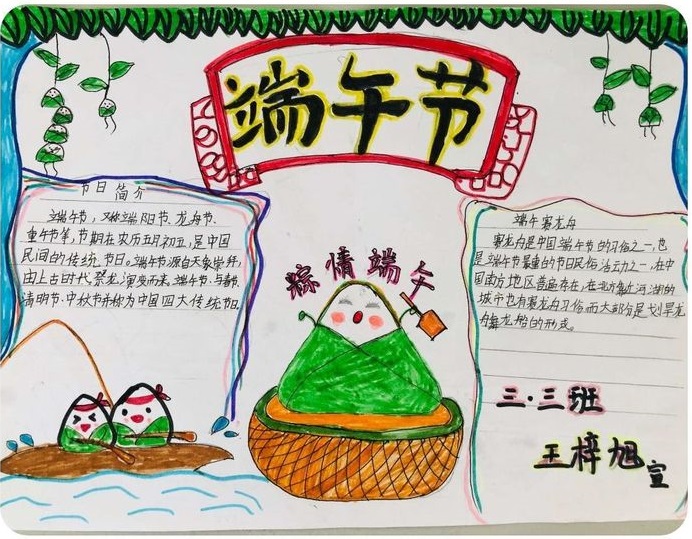 端午节
节日简介
端午节，又称端阳节、龙舟节、
重午节等，节期在农历五月初五，是中国
民间的传统节日。端午节源自天象崇拜，
由上古时代祭龙演变而来。端午节、与春节、
清明节、中秋节并称为中国四大传统节日。
粽情端午
端午赛龙舟
赛龙舟是中国端午节的习俗之一，也
是端午节最重的节日民俗活动之一，在中
国南方地区普遍存在，在北方靠近河湖的
城市也有赛龙舟习俗，而大部分是划旱龙
舟舞龙船的形式。
三·三班
王梓旭
宣